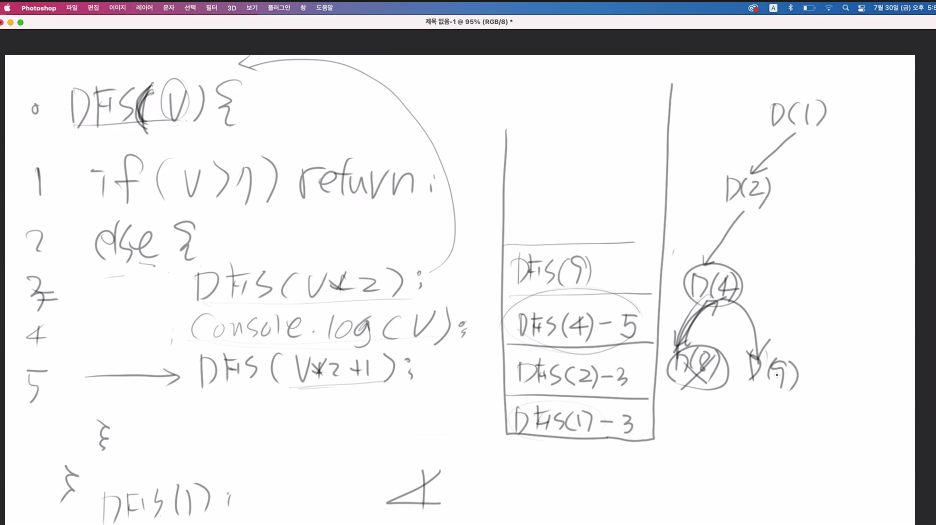 Photoshop 파일 편집 이미지 레이어 문자 선택 필터 3D 보기 플러그인 창 도움말
A 7월 30일 (금) 오후 5:5
제목 없음-1 @ 95% (RGB/8) *
0 DFS(V){
1 if(V>7) return;
2 else {
3 DFS(V*2);
4 Console.log(V);
5 DFS(V*2+1);
}
}
DFS(1);
4
DFS(9)
DFS(4)-5
DFS(2)-3
DFS(1)-3
D(1)
D(2)
D(4)
D(8) D(9)